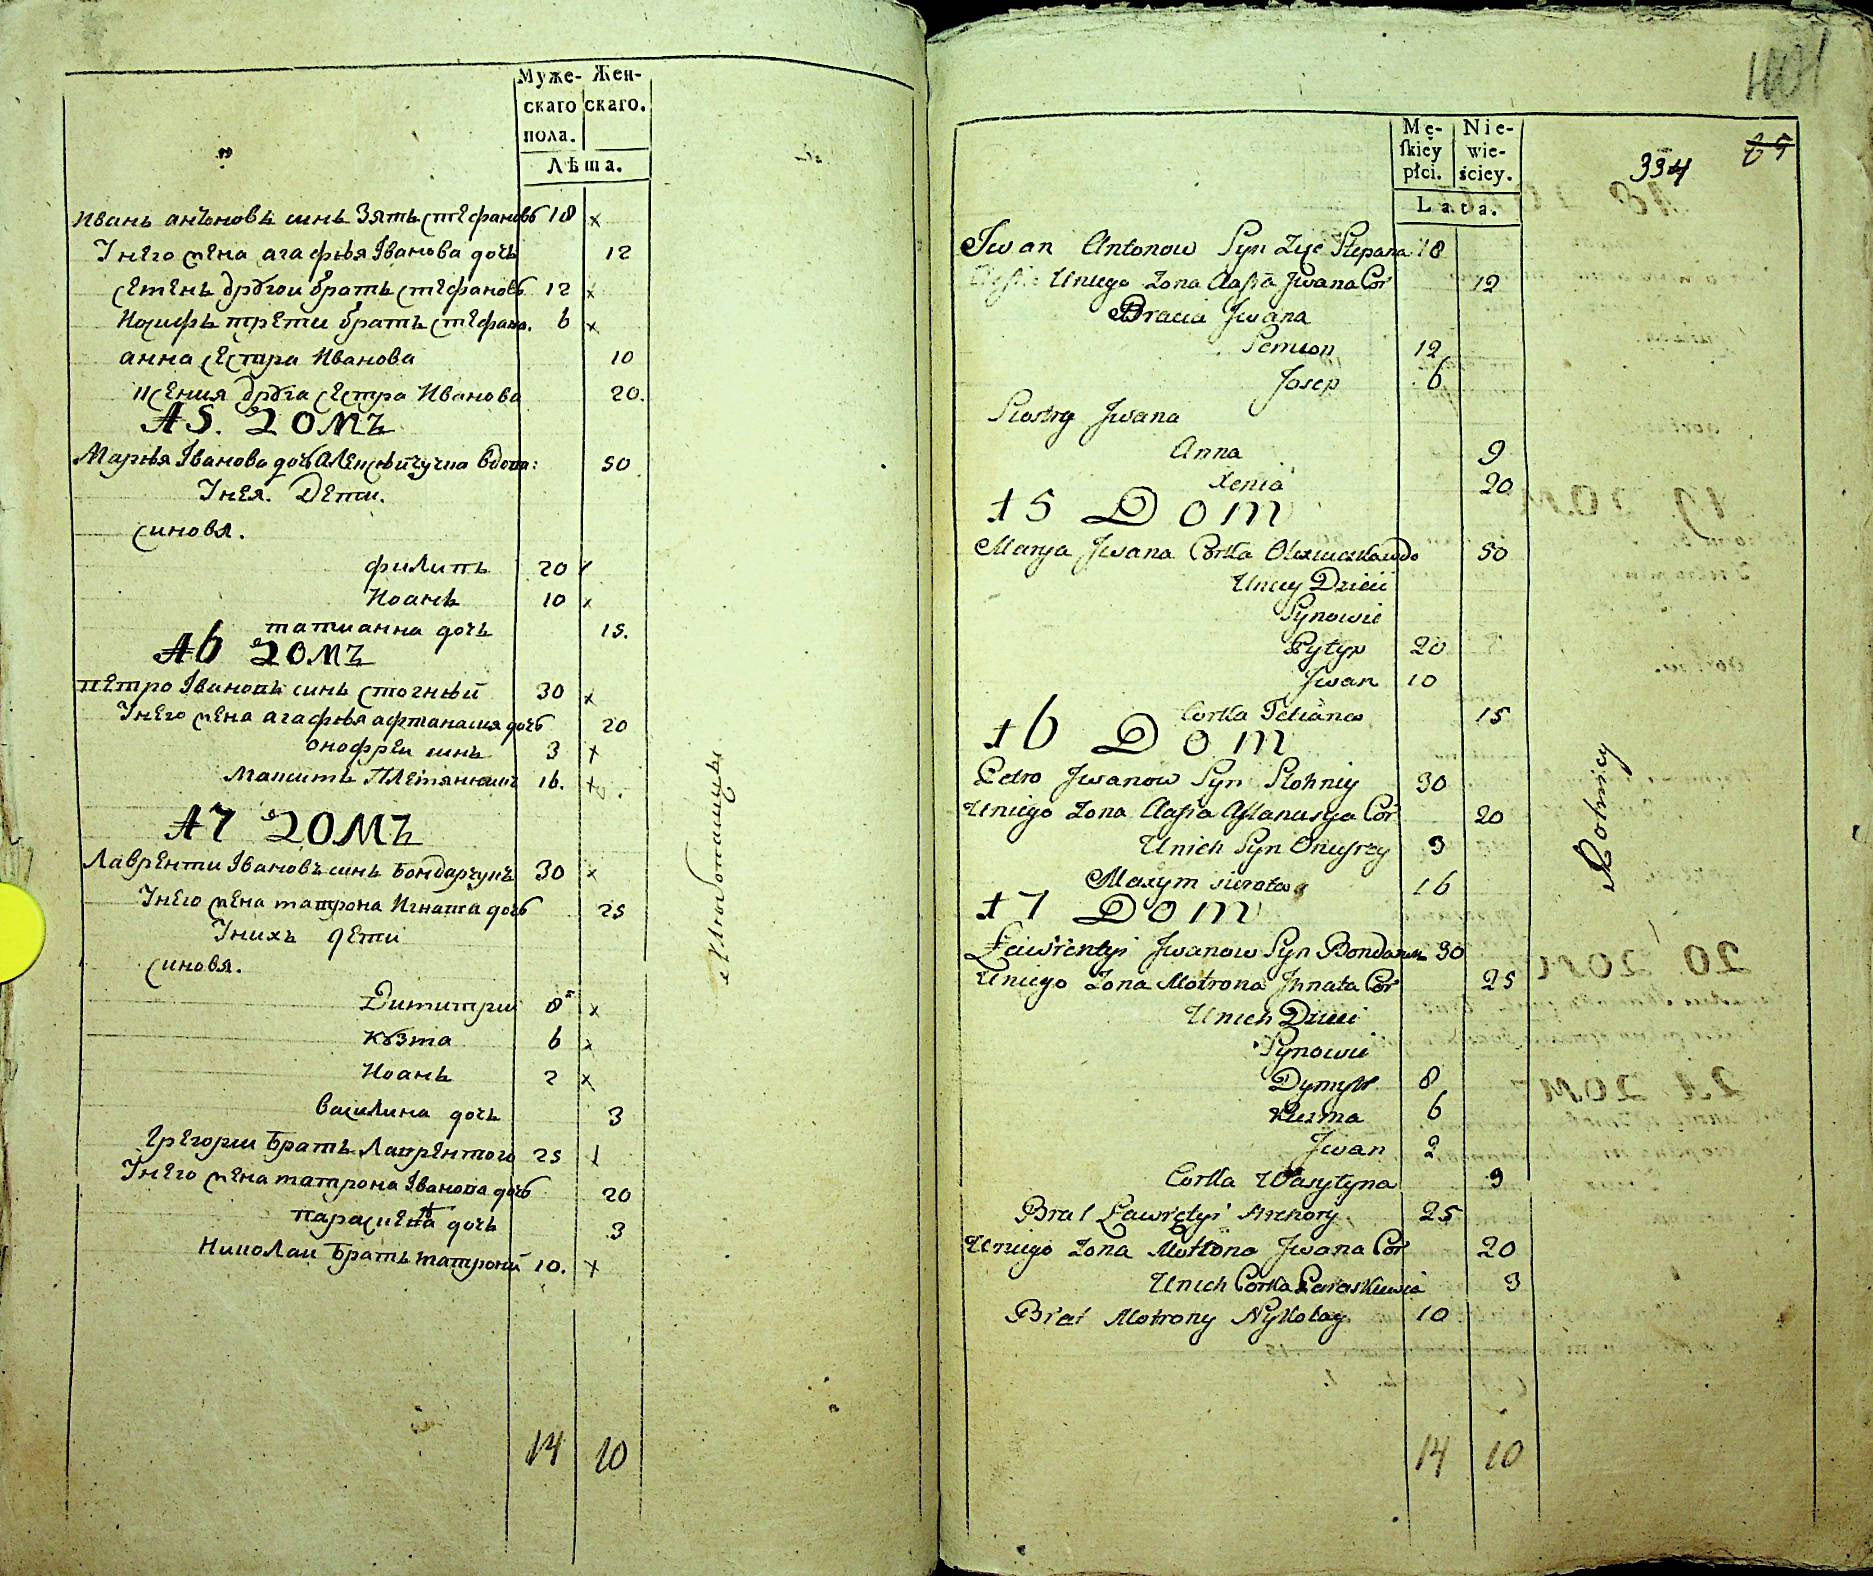 Муже- Жен-
скаго скаго.
пола.
Лѣта.
Иванъ антоновъ синъ Зять стефановъ 18 x
Унего жена агафия Іванова дочь 12
семенъ другои братъ стефановъ 12 x
Иосифъ трети братъ стефано. 6 x
анна сестра Иванова 10
ксения друга сестра Иванова 20.
15. ДОМЪ
Мария Іванова дочь вдова: 50
Унея. Дети.
синовя.
филипъ 20
Иоанъ 10 x
татианна дочь 15.
16 ДОМЪ
петро Івановъ синъ стогний 30 x
Унего жена агафия афтанасия дочь 20
онофреи синъ 3 x
Максимъ 16. x
17 ДОМЪ
Лаврентии Івановъ синъ Бондарчукъ 30 x
Унего жена матрона Игната дочь 25
Унихъ дети
синовя.
Димитрии 8 x
кузма 6 x
Иоанъ 2 x
василина дочь 3
григории братъ Лаврентого 25
Унего жена матрона Іванова дочь 20
параскева дочь 3
Николаи братъ матроны 10. x
14 10
Хлѣбопашцы
Mę- Nie-
ſkiey wie-
płci. ściey.
Lata.
334
65
Jwan Antonow Syn Zięc Stepana 18
Uniego Zona Aafia Jwana Cor 12
Bracia Jwana
Semion 12
Josep 6
Siostry Jwana
Anna 9
Xenia 20
15 Dom
Marya Jwana Corka 50
Uniey Dzieci
Synowie
Pylyp 20
Jwan 10
Corka Tetiana 15
16 Dom
Petro Jwanow Syn Stohniy 30
Uniego Zona Aafia Aftanasya Cor 20
Unich Syn Onufrey 3
Maxym sierota 16
17 Dom
Ławrentyi Jwanow Syn Bondarczuk 30
Uniego Zona Motrona Jhnata Cor 25
Unich Dzieci
Synowie
Dymytr 8
Kuzma 6
Jwan 2
Corka Wasylyna 3
Brat Ławrętyi Hrehory 25
Uniego Zona Motrona Jwana Cor 20
Unich Corka Paraskiewia 3
Brat Motrony Nykołay 10
14 10
Rolnicy